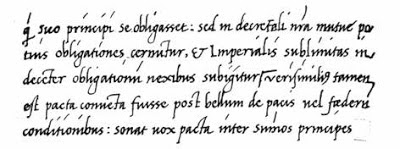 q̃ suo principi se obligasset: sed in decretali nr̃a mutuẽ po
tius obligationes cernũtur, & Imperialis sublimitas in
decẽter obligationũ nexibus subigitur: verisimilius tamen
est pacta conuẽta fuisse post bellum de pacis uel fœderis
conditionibus: sonat uox pacta inter sum̃os principes